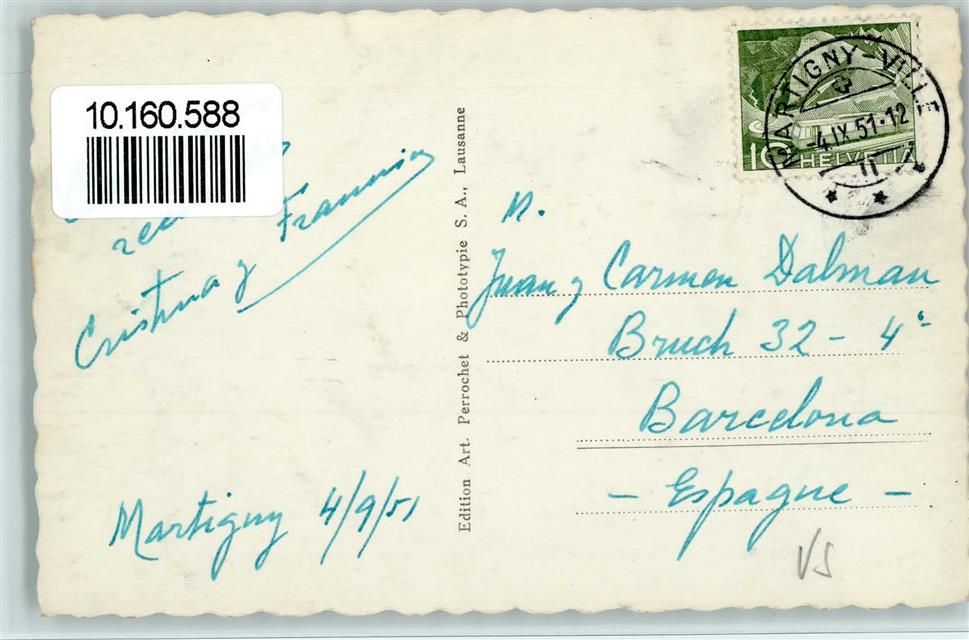 10.160.588
Cristina y
Martigny 4/9/51
Edition Art. Perrochet & Phototypie S. A., Lausanne
MARTIGNY-VILLE
-4.IX 51-12
10 HELVETIA
Juan y Carmen Dalmau
Bruch 32 - 4º
Barcelona
- Espagne -
VS